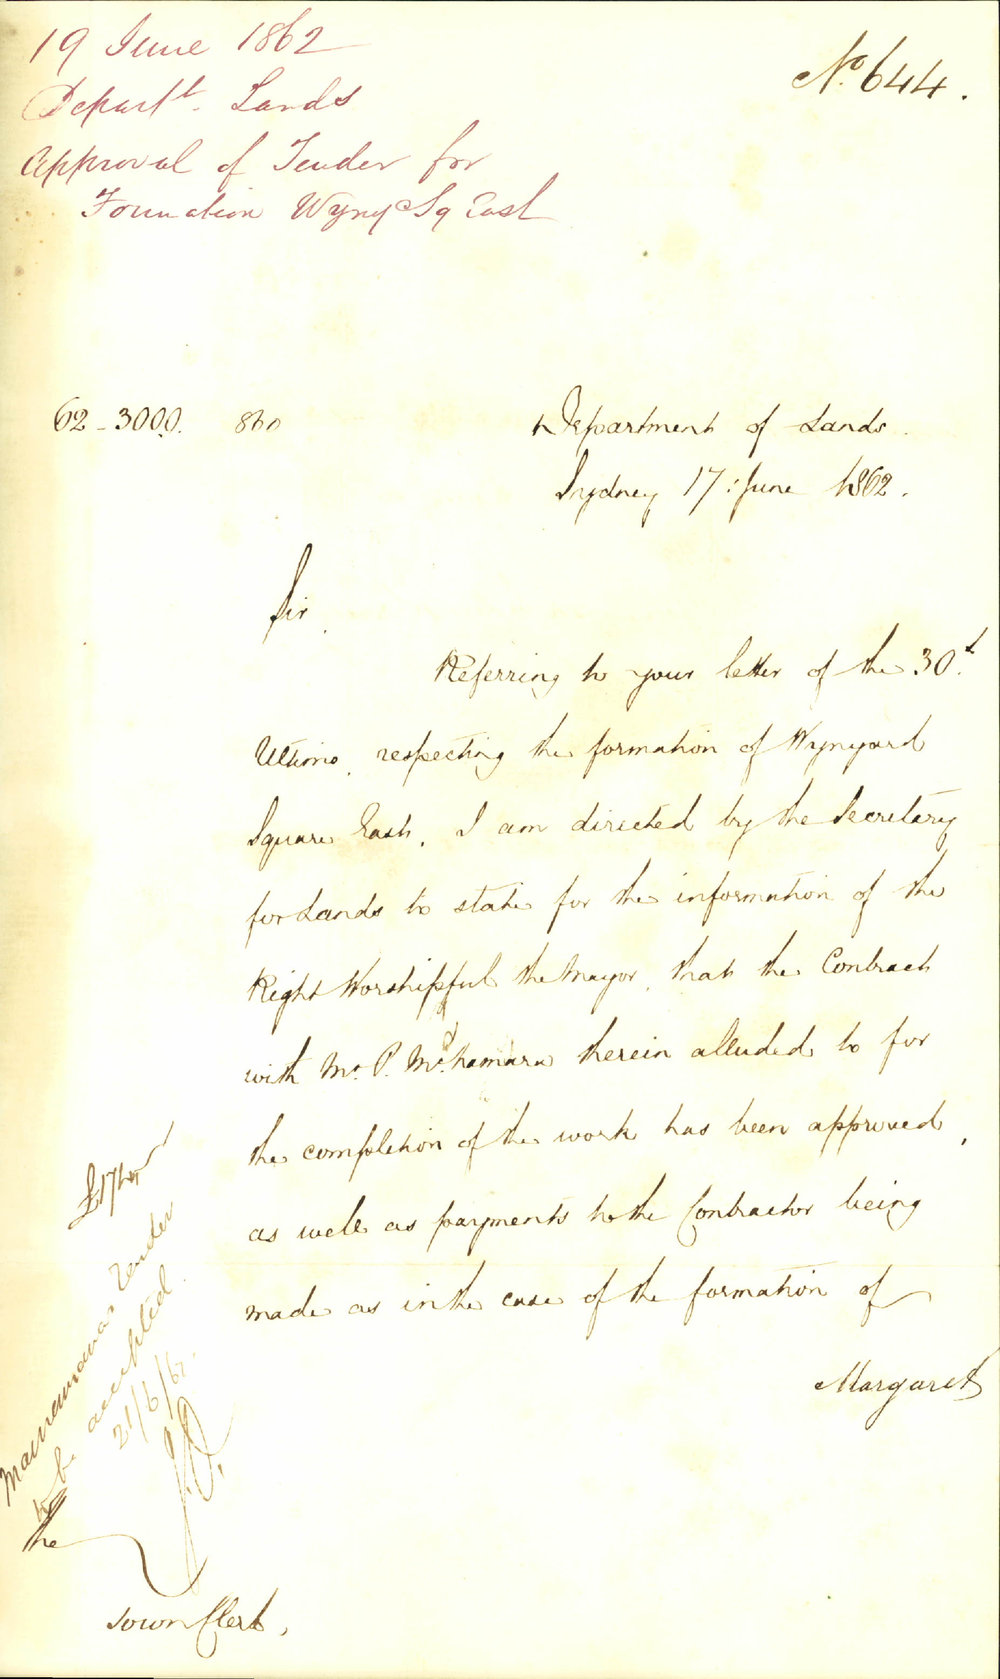 19 June 1862
Departt. Lands
Approval of Tender for
Formation Wynyd Sq East
No. 644.
62-3000. 860
Department of Lands.
Sydney 17: June 1862.
Sir,
Referring to your letter of the 30th.
Ultimo, respecting the formation of Wynyard
Square East, I am directed by the Secretary
for Lands to state for the information of the
Right Worshipful the Mayor, that the Contract
with Mr. P. McNamara therein alluded to for
the completion of the work has been approved,
as well as payments to the Contractor being
made as in the case of the formation of
Margaret
Macnamaras Tender
to be accepted
21/6/62.
The
Town Clerk,